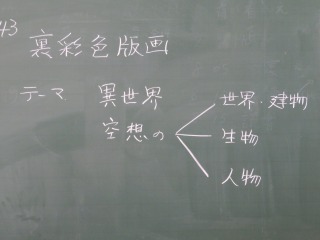 43
裏彩色版画
テーマ 異世界
空想の
世界・建物
生物
人物